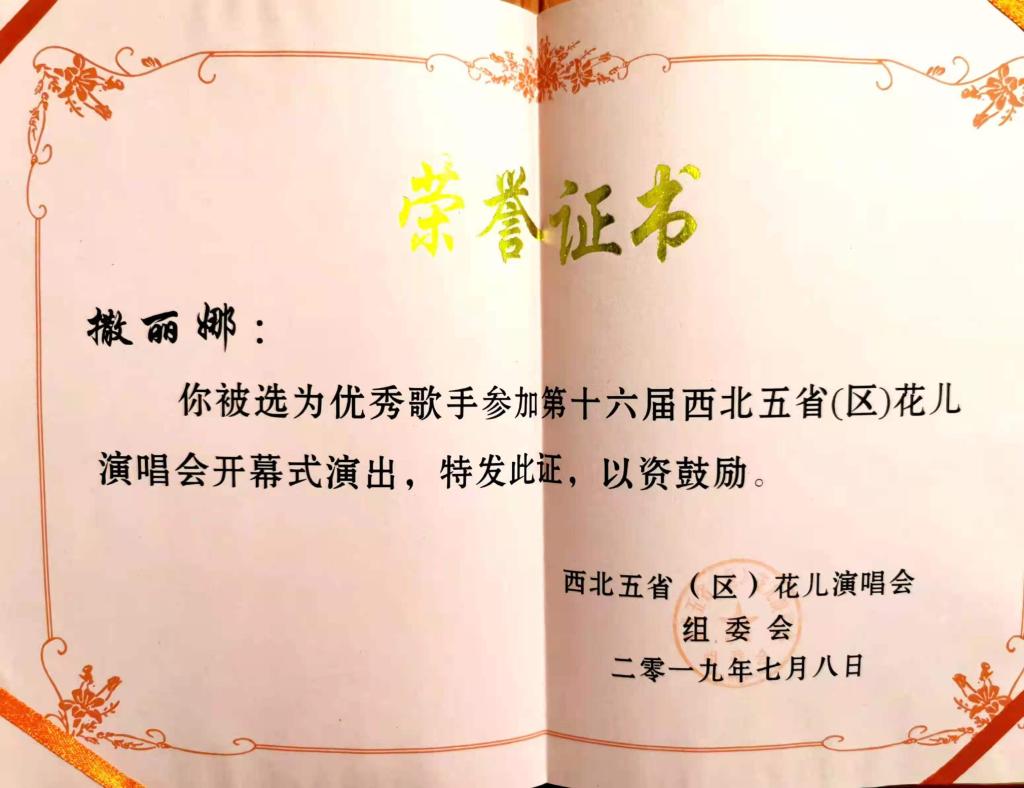 荣誉证书
撒丽娜：
你被选为优秀歌手参加第十六届西北五省(区)花儿
演唱会开幕式演出，特发此证，以资鼓励。
西北五省（区）花儿演唱会
组委会
二零一九年七月八日